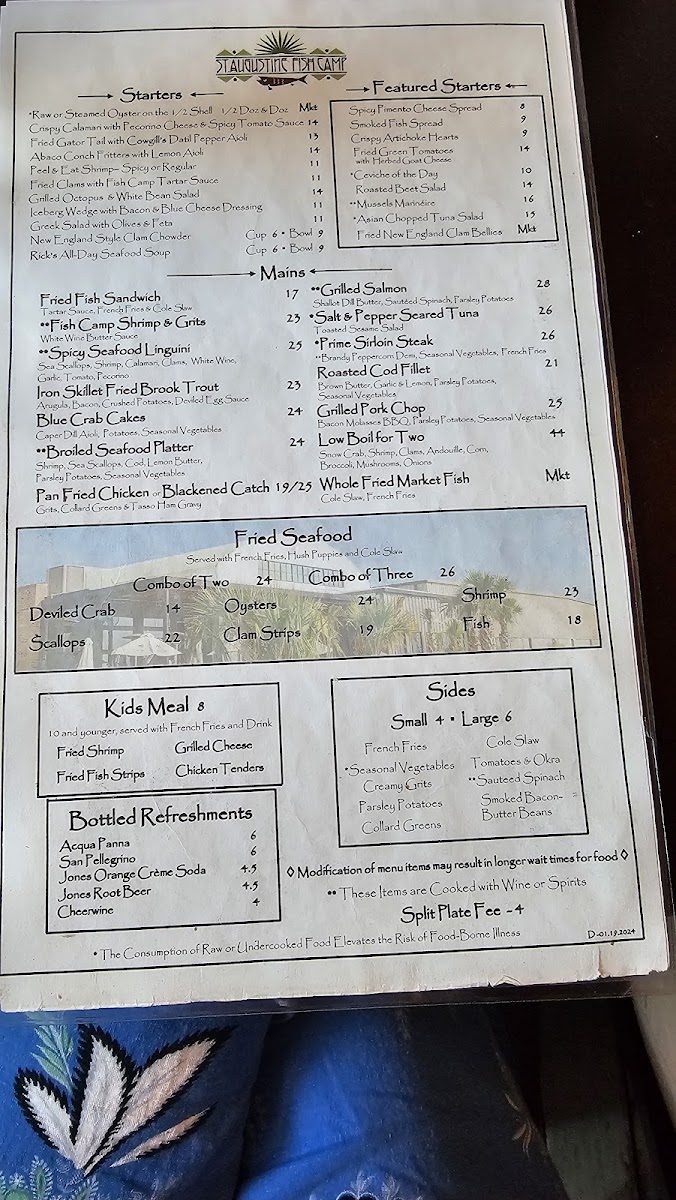 ST. AUGUSTINE FISH CAMP
Starters
*Raw or Steamed Oyster on the 1/2 Shell 1/2 Doz & Doz Mkt
Crispy Calamari with Pecorino Cheese & Spicy Tomato Sauce 14
Fried Gator Tail with Cowgill's Datil Pepper Aioli 13
Abaco Conch Fritters with Lemon Aioli 14
Peel & Eat Shrimp~ Spicy or Regular 11
Fried Clams with Fish Camp Tartar Sauce 11
Grilled Octopus & White Bean Salad 14
Iceberg Wedge with Bacon & Blue Cheese Dressing 11
Greek Salad with Olives & Feta 11
New England Style Clam Chowder Cup 6 • Bowl 9
Rick's All-Day Seafood Soup Cup 6 • Bowl 9
Featured Starters
Spicy Pimento Cheese Spread 8
Smoked Fish Spread 9
Crispy Artichoke Hearts 9
Fried Green Tomatoes 14
with Herbed Goat Cheese
*Ceviche of the Day 10
Roasted Beet Salad 14
**Mussels Marinéire 16
*Asian Chopped Tuna Salad 15
Fried New England Clam Bellies Mkt
Mains
Fried Fish Sandwich 17
Tartar Sauce, French Fries & Cole Slaw
**Fish Camp Shrimp & Grits 23
White Wine Butter Sauce
**Spicy Seafood Linguini 25
Sea Scallops, Shrimp, Calamari, Clams, White Wine,
Garlic, Tomato, Pecorino
Iron Skillet Fried Brook Trout 23
Arugula, Bacon, Crushed Potatoes, Deviled Egg Sauce
Blue Crab Cakes 24
Caper Dill Aioli, Potatoes, Seasonal Vegetables
**Broiled Seafood Platter 24
Shrimp, Sea Scallops, Cod, Lemon Butter,
Parsley Potatoes, Seasonal Vegetables
Pan Fried Chicken or Blackened Catch 19/25
Grits, Collard Greens & Tasso Ham Gravy
**Grilled Salmon 28
Shallot Dill Butter, Sautéed Spinach, Parsley Potatoes
*Salt & Pepper Seared Tuna 26
Toasted Sesame Salad
*Prime Sirloin Steak 26
**Brandy Peppercorn Demi, Seasonal Vegetables, French Fries
Roasted Cod Fillet 21
Brown Butter, Garlic & Lemon, Parsley Potatoes,
Seasonal Vegetables
Grilled Pork Chop 25
Bacon Molasses BBQ, Parsley Potatoes, Seasonal Vegetables
Low Boil for Two 44
Snow Crab, Shrimp, Clams, Andouille, Corn,
Broccoli, Mushrooms, Onions
Whole Fried Market Fish Mkt
Cole Slaw, French Fries
Fried Seafood
Served with French Fries, Hush Puppies and Cole Slaw
Combo of Two 24 Combo of Three 26
Deviled Crab 14 Oysters 24 Shrimp 23
Scallops 22 Clam Strips 19 Fish 18
Kids Meal 8
10 and younger, served with French Fries and Drink
Fried Shrimp Grilled Cheese
Fried Fish Strips Chicken Tenders
Bottled Refreshments
Acqua Panna 6
San Pellegrino 6
Jones Orange Crème Soda 4.5
Jones Root Beer 4.5
Cheerwine 4
Sides
Small 4 • Large 6
French Fries Cole Slaw
*Seasonal Vegetables Tomatoes & Okra
Creamy Grits **Sauteed Spinach
Parsley Potatoes Smoked Bacon~
Collard Greens Butter Beans
◊ Modification of menu items may result in longer wait times for food ◊
** These Items are Cooked with Wine or Spirits
Split Plate Fee ~ 4
* The Consumption of Raw or Undercooked Food Elevates the Risk of Food-Borne Illness
D~01.19.2024